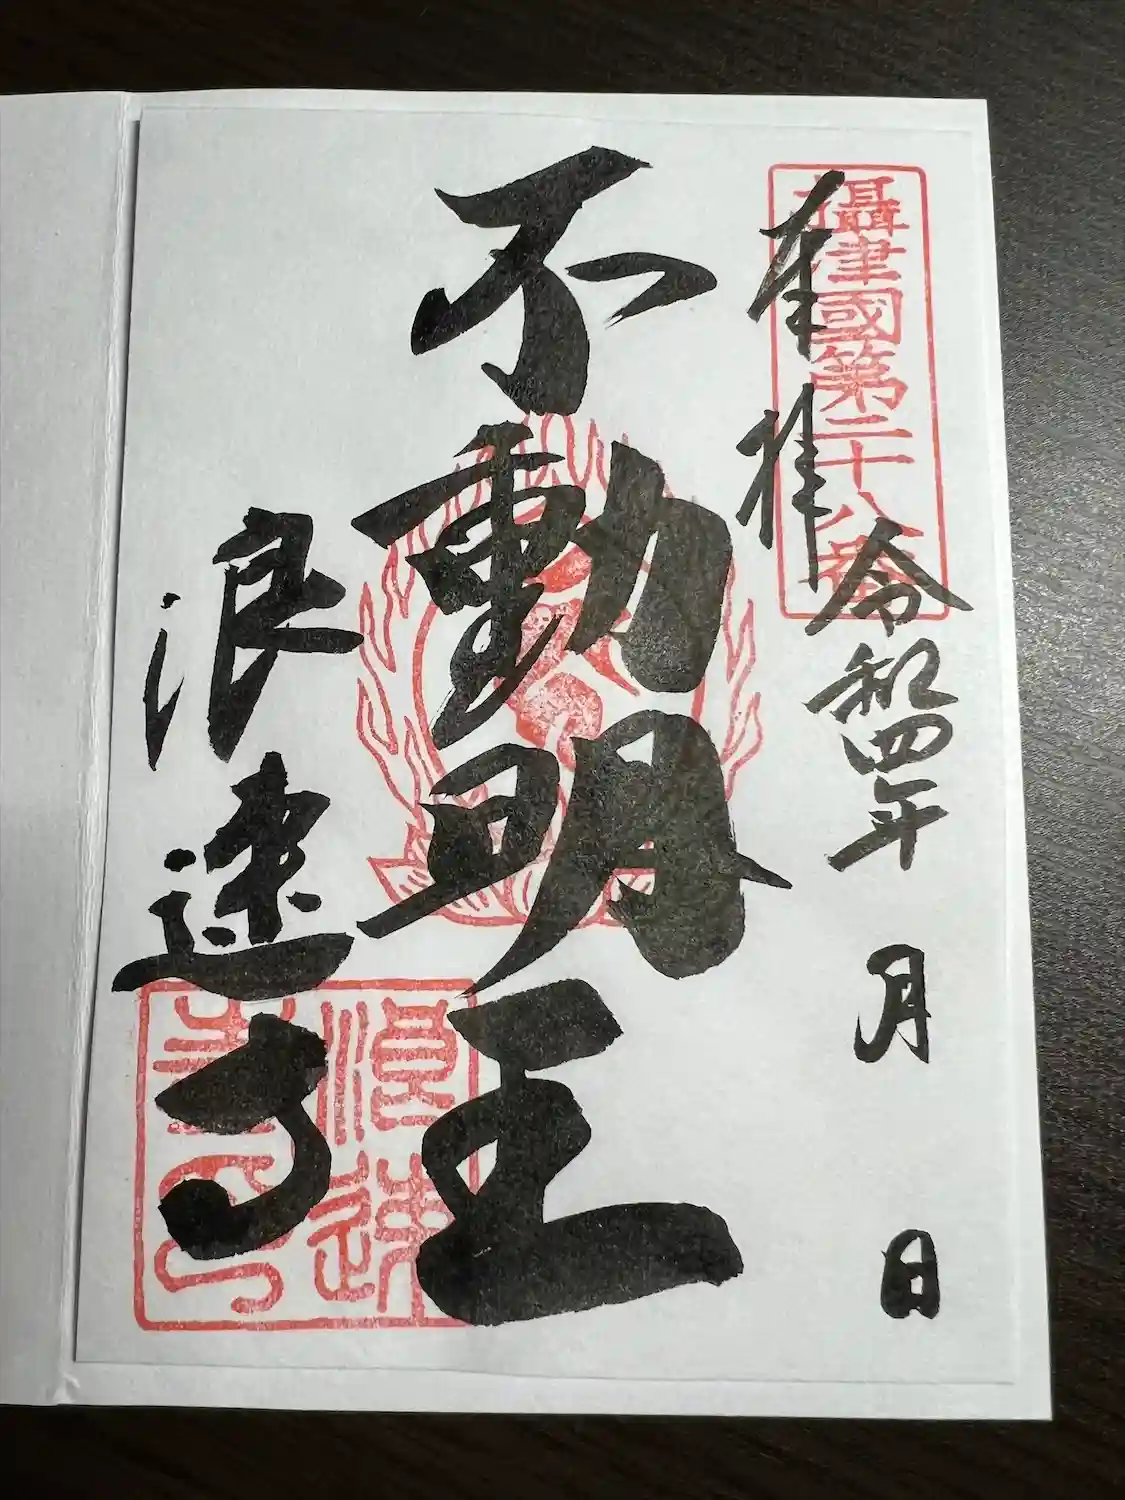 攝津國第二十八番
奉拝
令和四年 月 日
不動明王
浪速寺
浪速
寺印